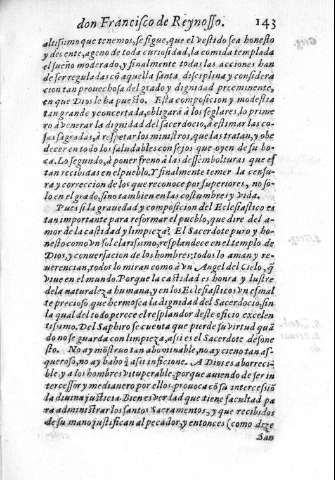 don Francisco de Reynosso. 143
altissimo que tenemos, se sigue, que el vestido sea honesto
y decente, ageno de toda curiosidad, la comida templada
el sueño moderado, y finalmente todas las acciones han
de ser reguladas cõ aquella santa desciplina y considera
cion tan prouechosa del grado y dignidad preeminente,
en que Dios le ha puesto. Esta composicion y modestia
tan grande y concertada, obligarà à los seglares, lo prime
ro à venerar la dignidad del sacerdocio, à estimar las co-
sas sagradas, à respetar los ministros, que las tratan, y obe
decer en todo los saludables consejos que oyen de su bo
ca. Lo segundo, à poner freno à las dessembolturas que es
tan recibidas en el pueblo. Y finalmente temer la censu
ra y correccion de los que reconoce por superiores, no so-
lo en el grado, sino tambien en las costumbres y vida.
Pues si la grauedad y composicion del Eclesiastico es
tan importante para reformar el pueblo, que dire del a-
mor de la castidad y limpieza? El Sacerdote puro y ho-
nesto como vn sol clarissimo, resplandece en el templo de
Dios, y conuersacion de los hombres: todos lo aman y re-
uerencian, todos lo miran como à vn Angel del Cielo, q̃
viue en el mundo. Porque la castidad es honra y lustre
de la naturaleza humana, y en los Eclesiasticos vn esmal
te precioso que hermosea la dignidad del Sacerdocio, sin
la qual del todo perece el resplandor deste oficio excelen
tissimo. Del Saphiro se cuenta que pierde su virtud quã
do no se guarda con limpieza, assi es el Sacerdote desone
sto. No ay mõstruo tan abominable, no ay cieno tan as-
queroso, no ay baho q̃ assi inficione. A Dios es aborreci-
ble, y a los hombres vituperable, porque auiendo de ser in
tercessor y medianero por ellos, prouoca cõ su intercessiõ
la diuina justicia. Bien es verdad que tiene facultad pa
ra administrar los santos Sacramentos, y que recibidos
de su mano justifican al pecador, y entonces (como dize
San